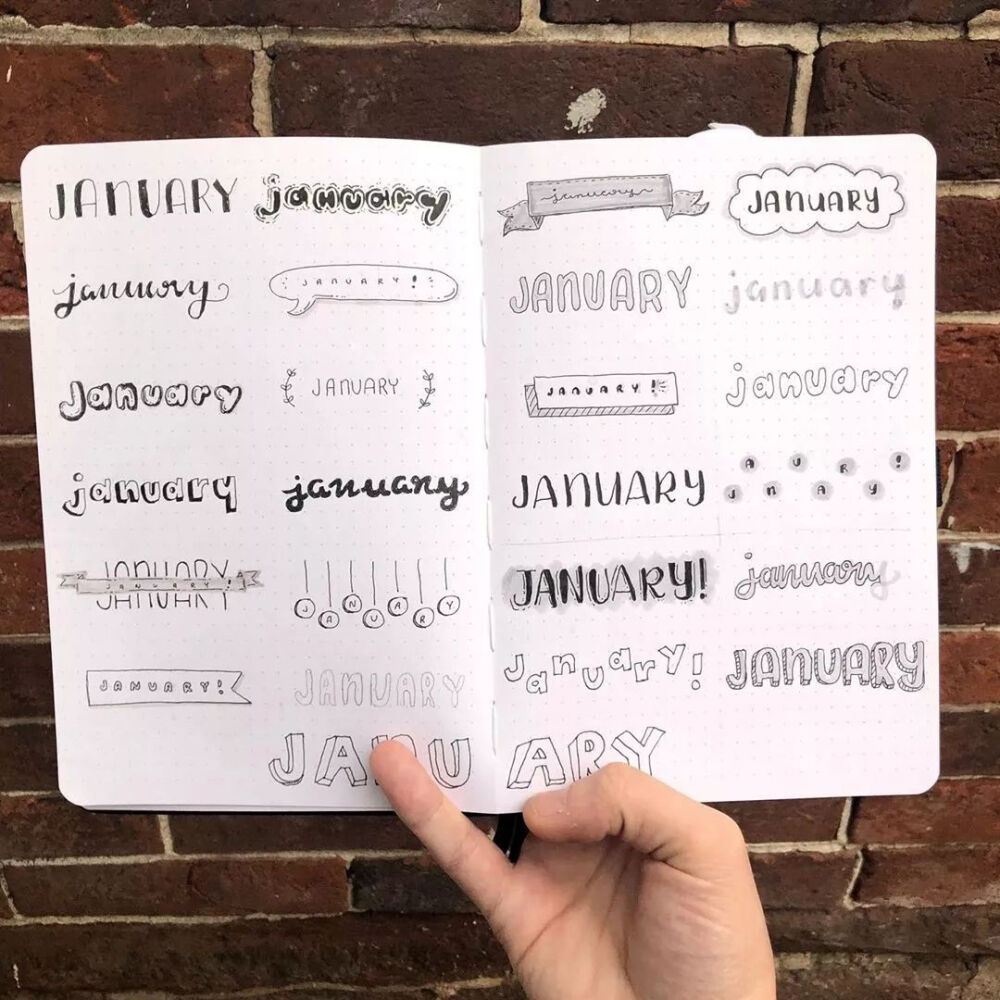 JANUARY
january
january
JANUARY!
January
JANUARY
january
january
JANUARY
JANUARY!
JANUARY
JANUARY!
JANUARY
january
JANUARY
JANUARY
january
JANUARY!
january
JANUARY
JANUARY!
JANUARY!
january
January!
JANUARY
JANUARY